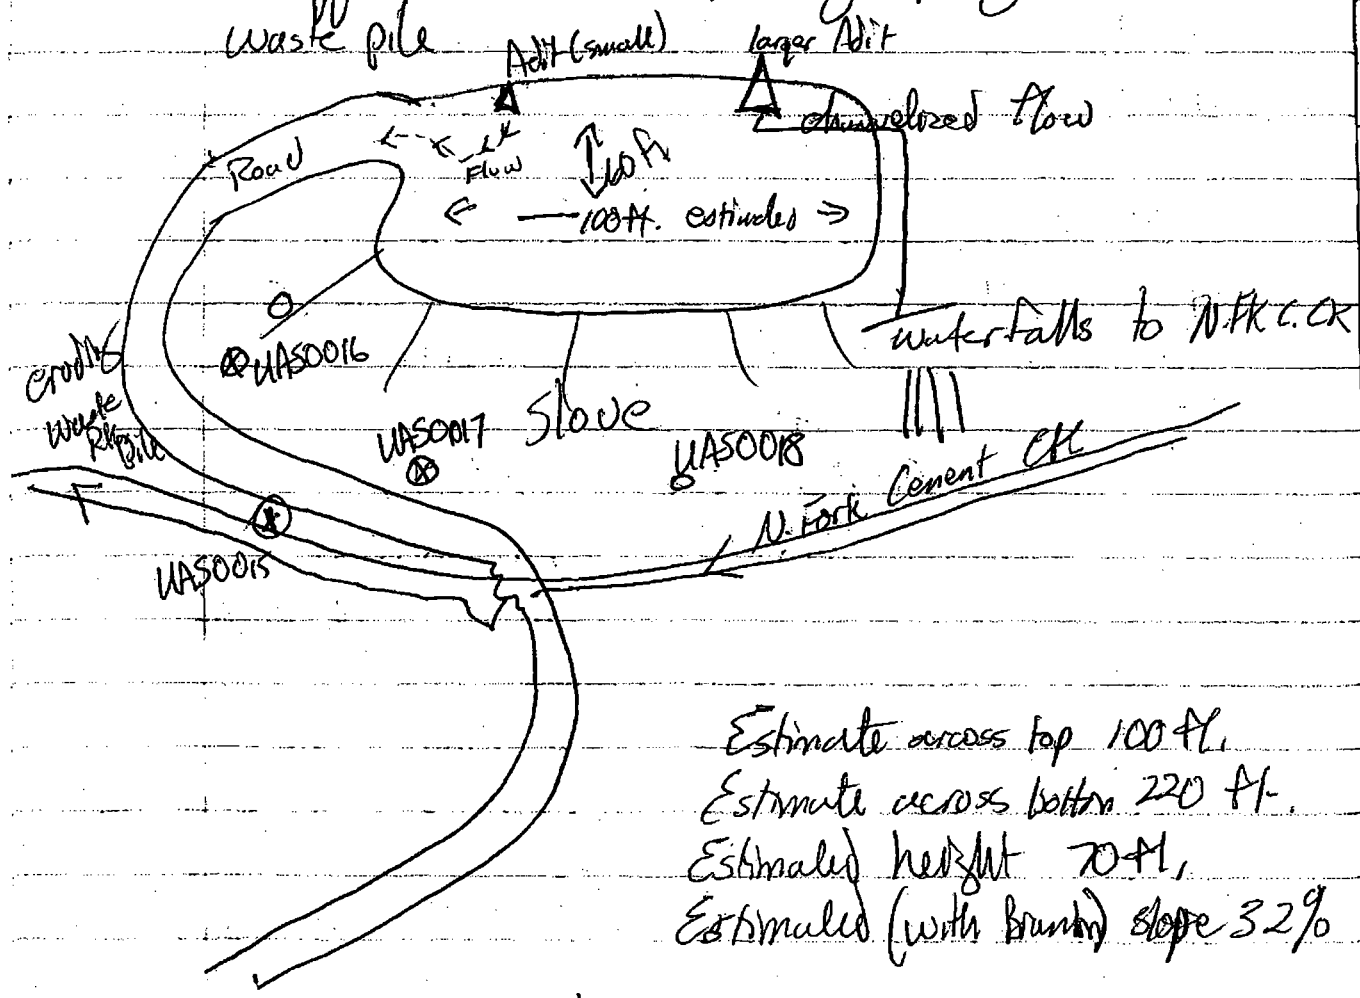 waste pile
Adit (small)
larger Adit
channelized flow
Road
Flow
60 ft
100 ft. estimates
UASO016
waterfalls to N.FK C.CK
eroding
Waste
Rk pile
UASO017
Slope
UASO018
N. Fork Cement CK
UASO015
Estimate across top 100 ft.
Estimate across bottom 220 ft.
Estimated height 70 ft.
Estimated (with Brunton) slope 32%